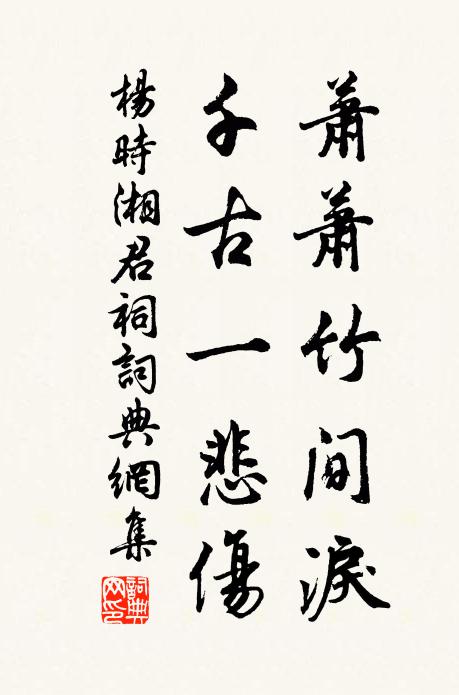 蕭蕭竹間淚
千古一悲傷
楊時湘君祠詞典網集
詞典網印